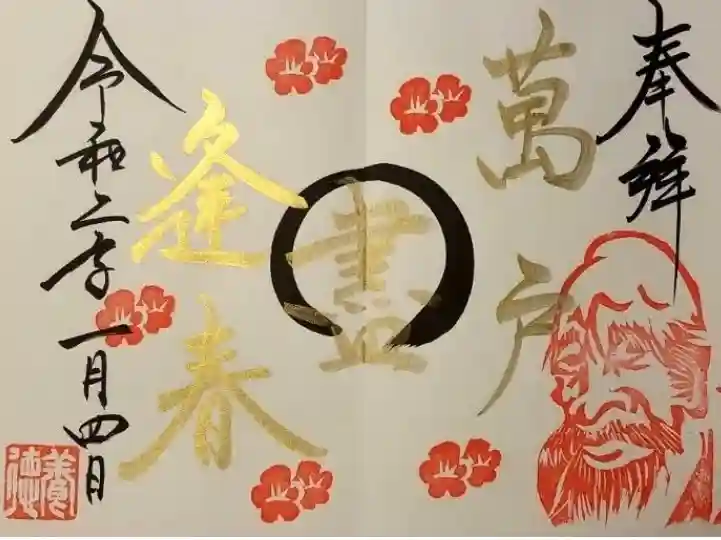 奉拜
萬戸
盡
逢春
令和二年一月四日
養徳